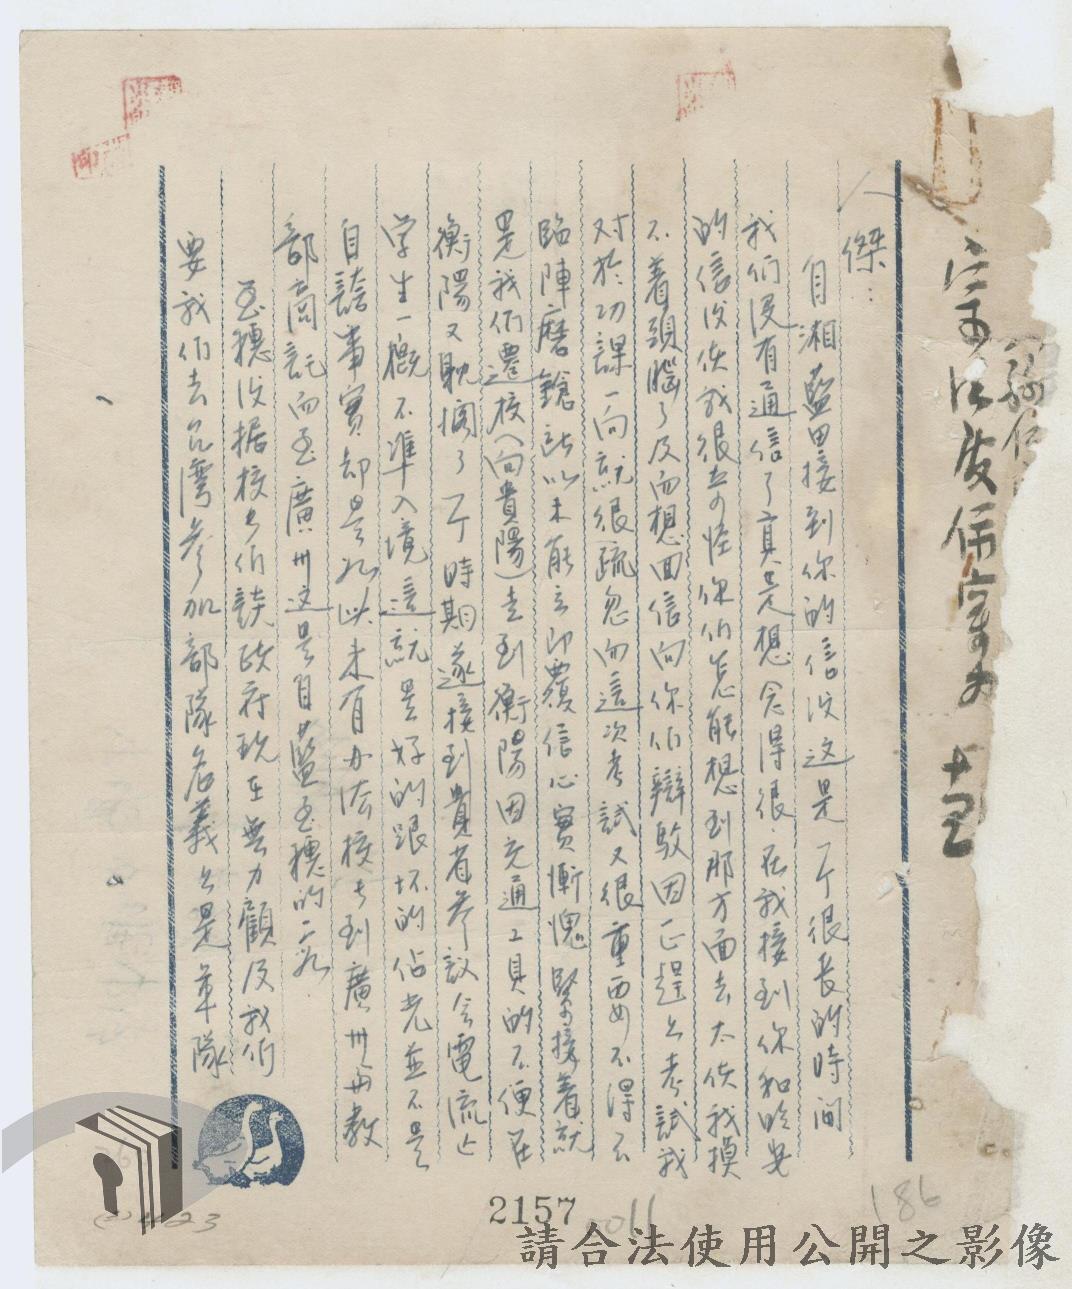 人傑：
自湘藍田接到你的信後这是一个很长的時间
我们沒有通信了真是想念得很．在我接到你和
的信後使我很奇怪你们怎能想到那方面去太使我摸
不着頭腦了及而想回信向你们辯駁因正趕上考試我
对於功課一向就很疏忽而這次考試又很重要不得不
臨陣磨鎗所以未能立即覆信心實慚愧緊接着就
是我们遷校（向貴陽）走到衡陽因交通工具的不便在
衡陽又耽擱了一个時期遂接到貴省參议会電流亡
学生一概不準入境這就是好的跟坏的佔光並不是
自誇事實却是於此未有办法校长到廣州與教
部商託而至廣州这是自藍至穗的一段
至穗後据校长们談政府现在無力顧及我们
要我们去台灣参加部隊名義上是軍隊
2157
0011
186
請合法使用公開之影像